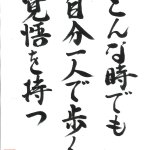 こんな時でも
自分一人で歩く
覚悟を持つ